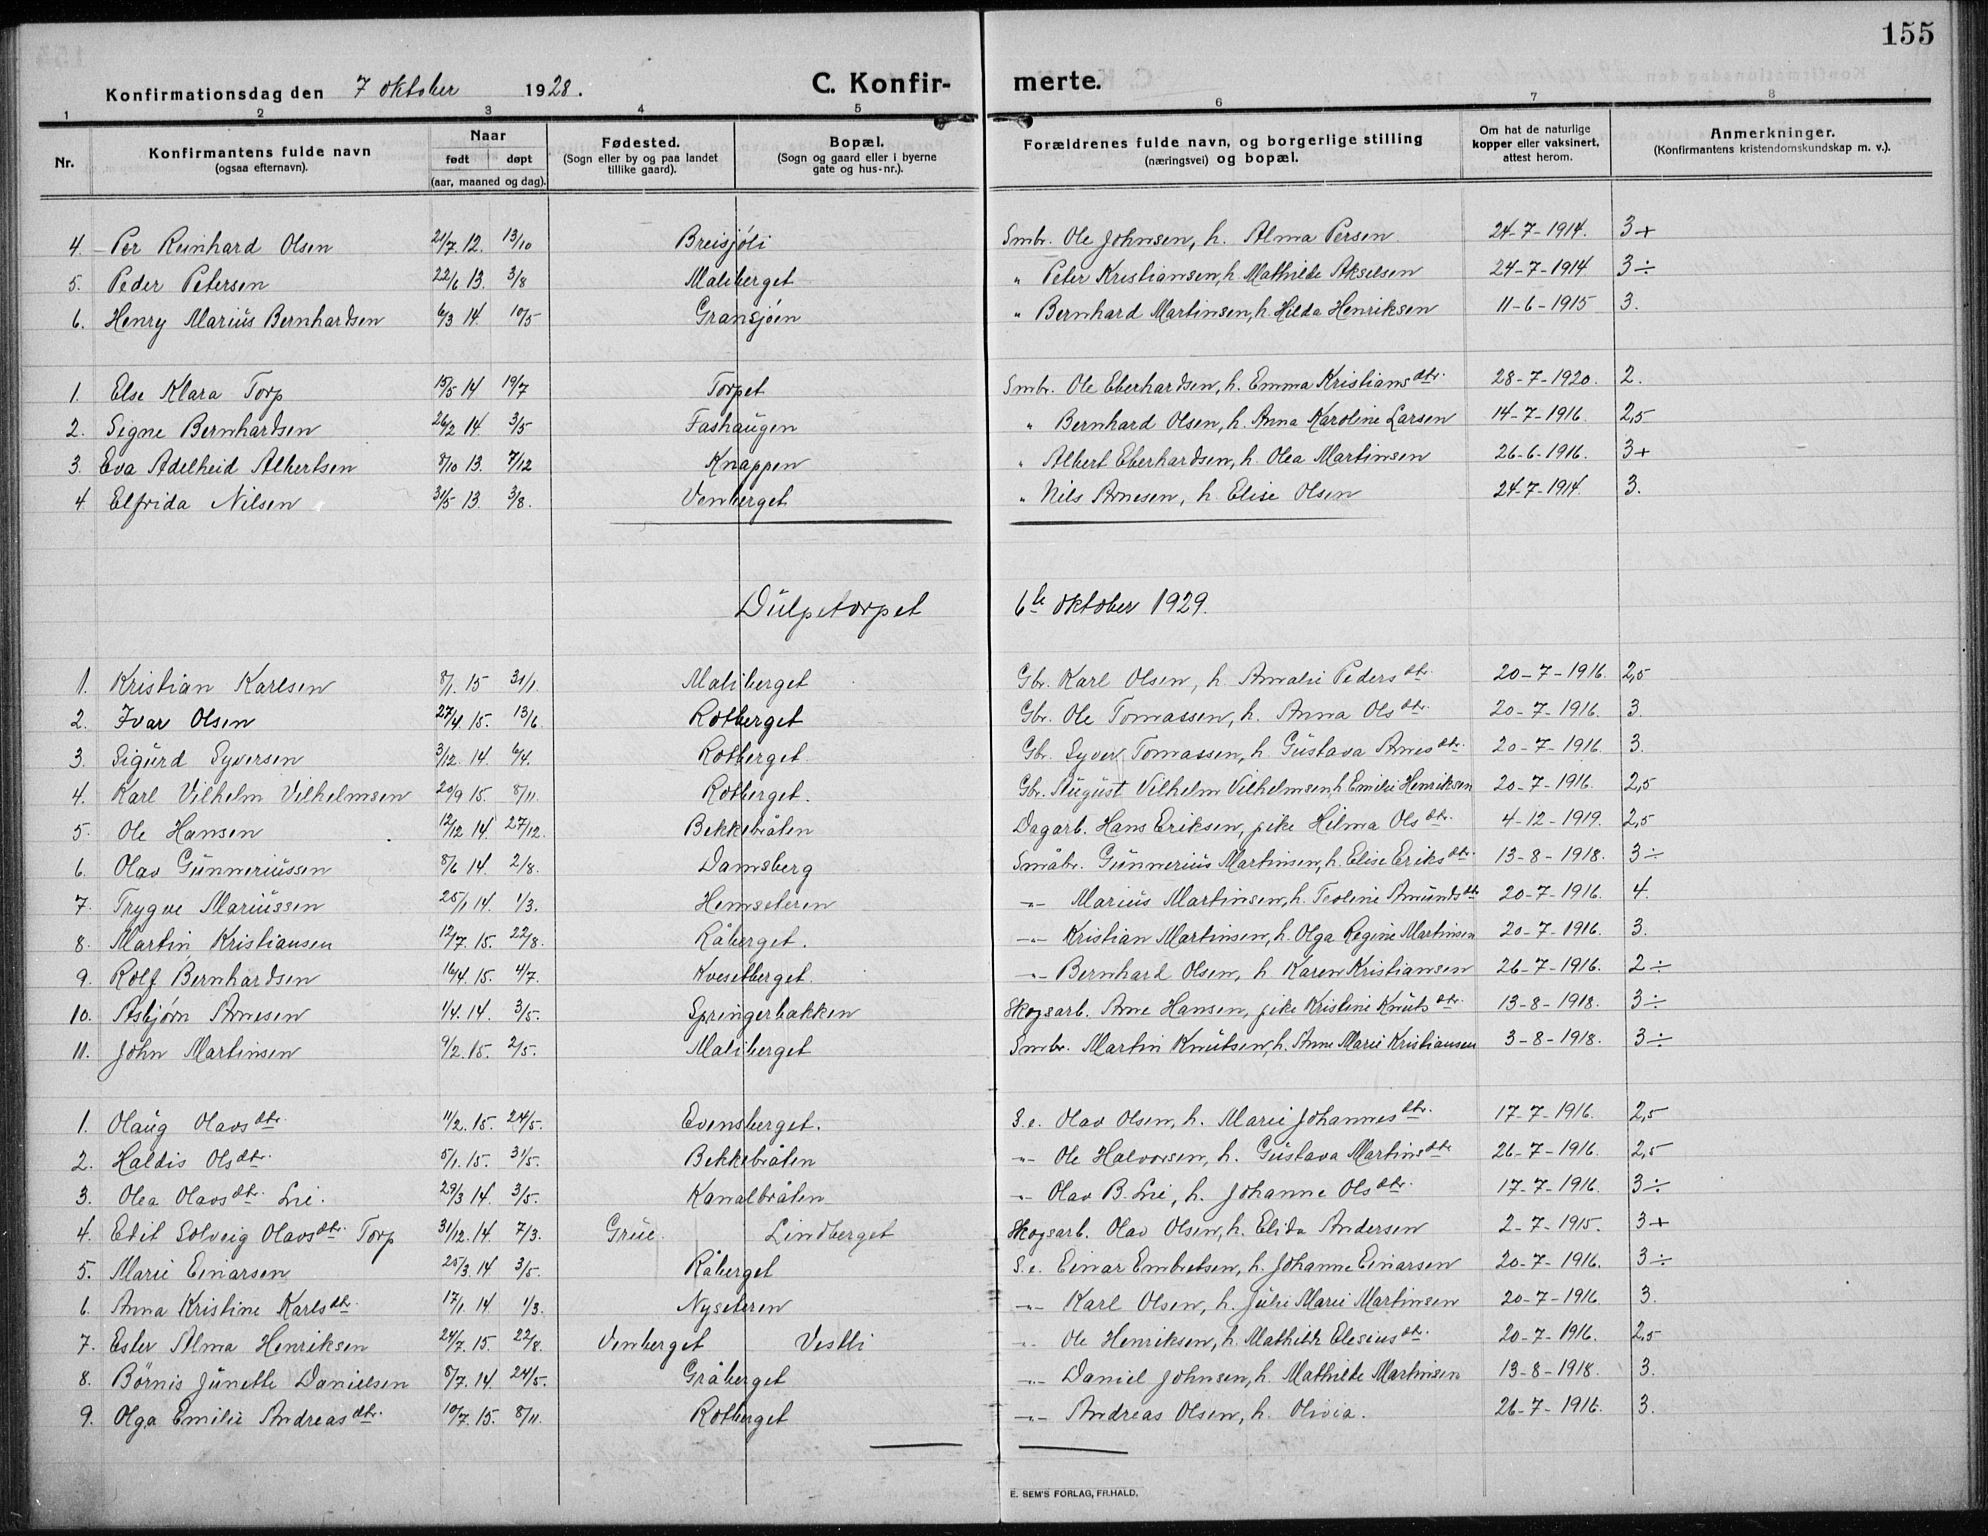 155
Konfirmationsdag den 7 oktober 1928. C. Konfir- merte.
1 2 3 4 5 6 7 8
Nr. Konfirmantens fulde navn (ogsaa efternavn). Naar født døpt (aar, maaned og dag). Fødested. (Sogn eller by og paa landet tillike gaard). Bopæl. (Sogn og gaard eller i byerne gate og hus-nr.). Forældrenes fulde navn, og borgerlige stilling (næringsvei) og bopæl. Om hat de naturlige kopper eller vaksinert, attest herom. Anmerkninger. (Konfirmantens kristendomskundskap m. v.).
4. Per Reinhard Olsen 21/7. 12. 13/10 Breisjöli Smbr. Ole Johnsen, h. Alma Persen 24-7-1914. 3+
5. Peder Petersen 22/6 13. 3/8 Maliberget " Peter Kristiansen, h. Mathilde Akselsen 24-7-1914 3÷
6. Henry Marius Bernhardsen 6/3 14. 10/5 Gransjöen " Bernhard Martinsen, h. Hilda Henriksen 11-6-1915 3.
1. Else Klara Torp 15/5 14 19/7 Torpet Smbr. Ole Eberhardsen, h. Emma Kristiansdtr. 28-7-1920. 2.
2. Signe Bernhardsen 26/2 14. 3/5 Fashaugen " Bernhard Olsen, h. Anna Karoline Larsen 14-7-1916. 2,5
3. Eva Adelheid Albertsen 8/10 13. 7/12 Knappen " Albert Eberhardsen, h. Olea Martinsen 26-6-1916. 3+
4. Elfrida Nilsen 31/5 13. 3/8. Venberget " Nils Arnesen, h. Elise Olsen 24-7-1914. 3.
Dulpetorpet 6te oktober 1929.
1. Kristian Karlsen 8/1. 15 31/1. Maliberget Gbr. Karl Olsen, h. Amalie Pedersdtr. 20-7-1916. 2,5
2. Ivar Olsen 27/4 15. 13/6. Rotberget Gbr. Ole Tomassen, h. Anna Olsdtr. 20-7-1916. 3.
3. Sigurd Syversen 3/12. 14. 6/4. Rotberget Gbr. Syver Tomassen, h. Gustava Arnesdtr. 20-7-1916. 3.
4. Karl Vilhelm Vilhelmsen 20/9 15. 8/11. Rotberget. Gbr. August Vilhelm Vilhelmsen, h. Emilie Henriksen 20-7-1916. 2,5
5. Ole Hansen 12/12 14. 27/12. Bekkebråten Dagarb. Hans Eriksen, pike Hilma Olsdtr. 4-12-1919. 2,5
6. Olav Gunneriussen 8/6 14. 2/8. Damsberg Småbr. Gunnerius Martinsen, h. Elise Eriksdtr. 13-8-1918. 3÷
7. Trygve Mariussen 25/1 14. 1/3. Hemseteren -"- Marius Martinsen, h. Teoline Amundsdtr 20-7-1916. 4.
8. Martin Kristiansen 12/7. 15. 22/8. Råberget. -"- Kristian Martinsen, h. Olga Regine Martinsen 20-7-1916. 3.
9. Rolf Bernhardsen 16/4. 15. 4/7. Kvesetberget. -"- Bernhard Olsen, h. Karen Kristiansen 26-7-1916. 2÷
10. Asbjörn Arnesen 1/4. 14. 3/5. Springerbakken Skogsarb. Arne Hansen, pike Kristine Knutsdtr. 13-8-1918. 3÷
11. John Martinsen 9/2. 15. 2/5. Maliberget Smbr. Martin Knutsen, h. Anne Marie Kristiansen 3-8-1918. 3÷
1. Olaug Olavsdtr. 11/2. 15. 24/5. Evensberget. S.e. Olav Olsen, h. Marie Johannesdtr. 17-7-1916. 2,5
2. Haldis Olsdtr. 5/1. 15. 31/5. Bekkebråten -"- Ole Halvorsen, h. Gustava Martinsdtr. 26-7-1916. 2,5
3. Olea Olavsdtr. Lie. 29/3 14. 3/5. Kanalbråten -"- Olav B. Lie, h. Johanne Olsdtr. 17-7-1916. 3÷
4. Edit Solveig Olavsdtr. Torp 31/12. 14. 7/3. Grue. Lindberget Skogsarb. Olav Olsen, h. Elida Andersen 2-7-1915. 3+
5. Marie Einarsen 25/3. 14 3/5. Råberget S.e. Einar Embretsen, h. Johanne Einarsen 20-7-1916. 3÷
6. Anna Kristine Karlsdtr. 17/1. 14. 1/3. Nyseteren -"- Karl Olsen, h. Julie Marie Martinsen 20-7-1916 3.
7. Ester Alma Henriksen 24/7. 15. 22/8. Venberget Vestli -"- Ole Henriksen, h. Mathilde Elesiusdtr. 20-7-1916. 2,5
8. Börnis Junette Danielsen 8/7. 14. 24/5. Gråberget -"- Daniel Johnsen, h. Mathilde Martinsen 13-8-1918. 3.
9. Olga Emilie Andreasdtr. 10/7. 15. 8/11. Rotberget -"- Andreas Olsen, h. Olivia. 26-7-1916. 3.
E. SEM'S FORLAG, FR.HALD.